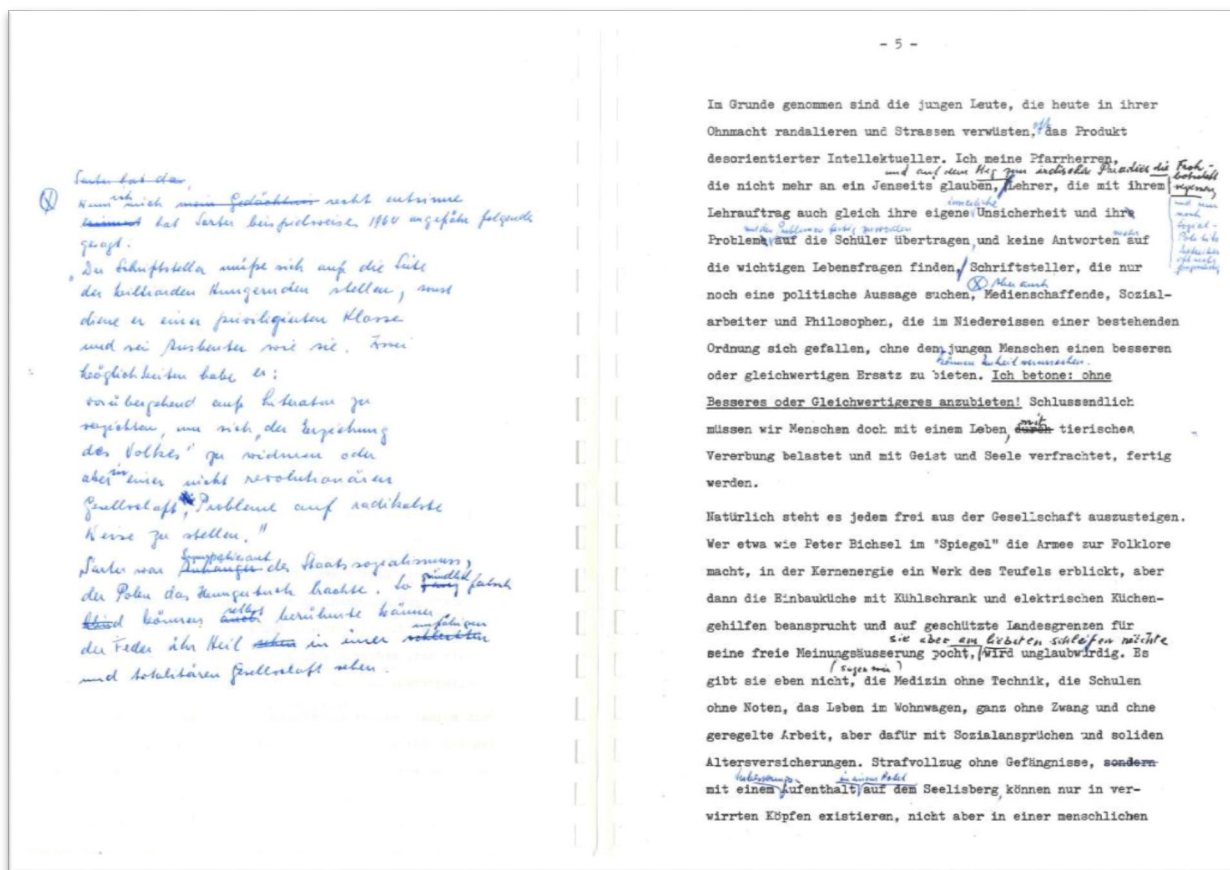 Sartre hat das,
Wenn ich mich mein Gedächtnis recht entsinne
stimmt hat Sartre beispielsweise 1964 ungefähr folgendes
gesagt:
"Der Schriftsteller müsse sich auf die Seite
der Milliarden Hungernden stellen, sonst
diene er einer privilegierten Klasse
und sei Ausbeuter wie sie. Zwei
Möglichkeiten habe er:
vorübergehend auf Literatur zu
verzichten, um sich "der Erziehung
des Volkes" zu widmen oder
aber in einer nicht revolutionären
Gesellschaft "Probleme auf radikalste
Weise zu stellen."
Sartre war Sympathisant Anhänger des Staatssozialismuss,
der Polen das Hungertuch brachte. So gründlich falsch
blind können auch selbst berühmte Männer
der Feder ihr Heil sehen in einer unfähigen schlechten
und totalitären Gesellschaft sehen.
- 5 -
Im Grunde genommen sind die jungen Leute, die heute in ihrer
Ohnmacht randalieren und Strassen verwüsten, oft das Produkt
desorientierter Intellektueller. Ich meine Pfarrherren,
und auf dem Weg zum irdischen Paradies die Froh-
botschaft
die nicht mehr an ein Jenseits glauben, Lehrer, die mit ihrem
und nur
noch
Sozial-
Lehrauftrag auch gleich ihre eigene Unsicherheit und ihre
mit den Problemen fertig zu werden
Probleme auf die Schüler übertragen und keine Antworten mehr auf
die wichtigen Lebensfragen finden, Schriftsteller, die nur
Aber auch
noch eine politische Aussage suchen, Medienschaffende, Sozial-
arbeiter und Philosophen, die im Niedereissen einer bestehenden
Ordnung sich gefallen, ohne dem jungen Menschen einen besseren
können Unheil verursachen.
oder gleichwertigen Ersatz zu bieten. Ich betone: ohne
Besseres oder Gleichwertigeres anzubieten! Schlussendlich
müssen wir Menschen doch mit einem Leben, durch mit tierischer
Vererbung belastet und mit Geist und Seele verfrachtet, fertig
werden.
Natürlich steht es jedem frei aus der Gesellschaft auszusteigen.
Wer etwa wie Peter Bichsel im "Spiegel" die Armee zur Folklore
macht, in der Kernenergie ein Werk des Teufels erblickt, aber
dann die Einbauküche mit Kühlschrank und elektrischen Küchen-
gehilfen beansprucht und auf geschützte Landesgrenzen für
sie aber am liebsten schleifen möchte
seine freie Meinungsäusserung pocht, wird unglaubwürdig. Es
gibt sie eben nicht, die Medizin ohne Technik, die Schulen
ohne Noten, das Leben im Wohnwagen, ganz ohne Zwang und ohne
geregelte Arbeit, aber dafür mit Sozialansprüchen und soliden
Altersversicherungen. Strafvollzug ohne Gefängnisse, sondern
in einem Hotel
mit einem Aufenthalt auf dem Seelisberg können nur in ver-
wirrten Köpfen existieren, nicht aber in einer menschlichen